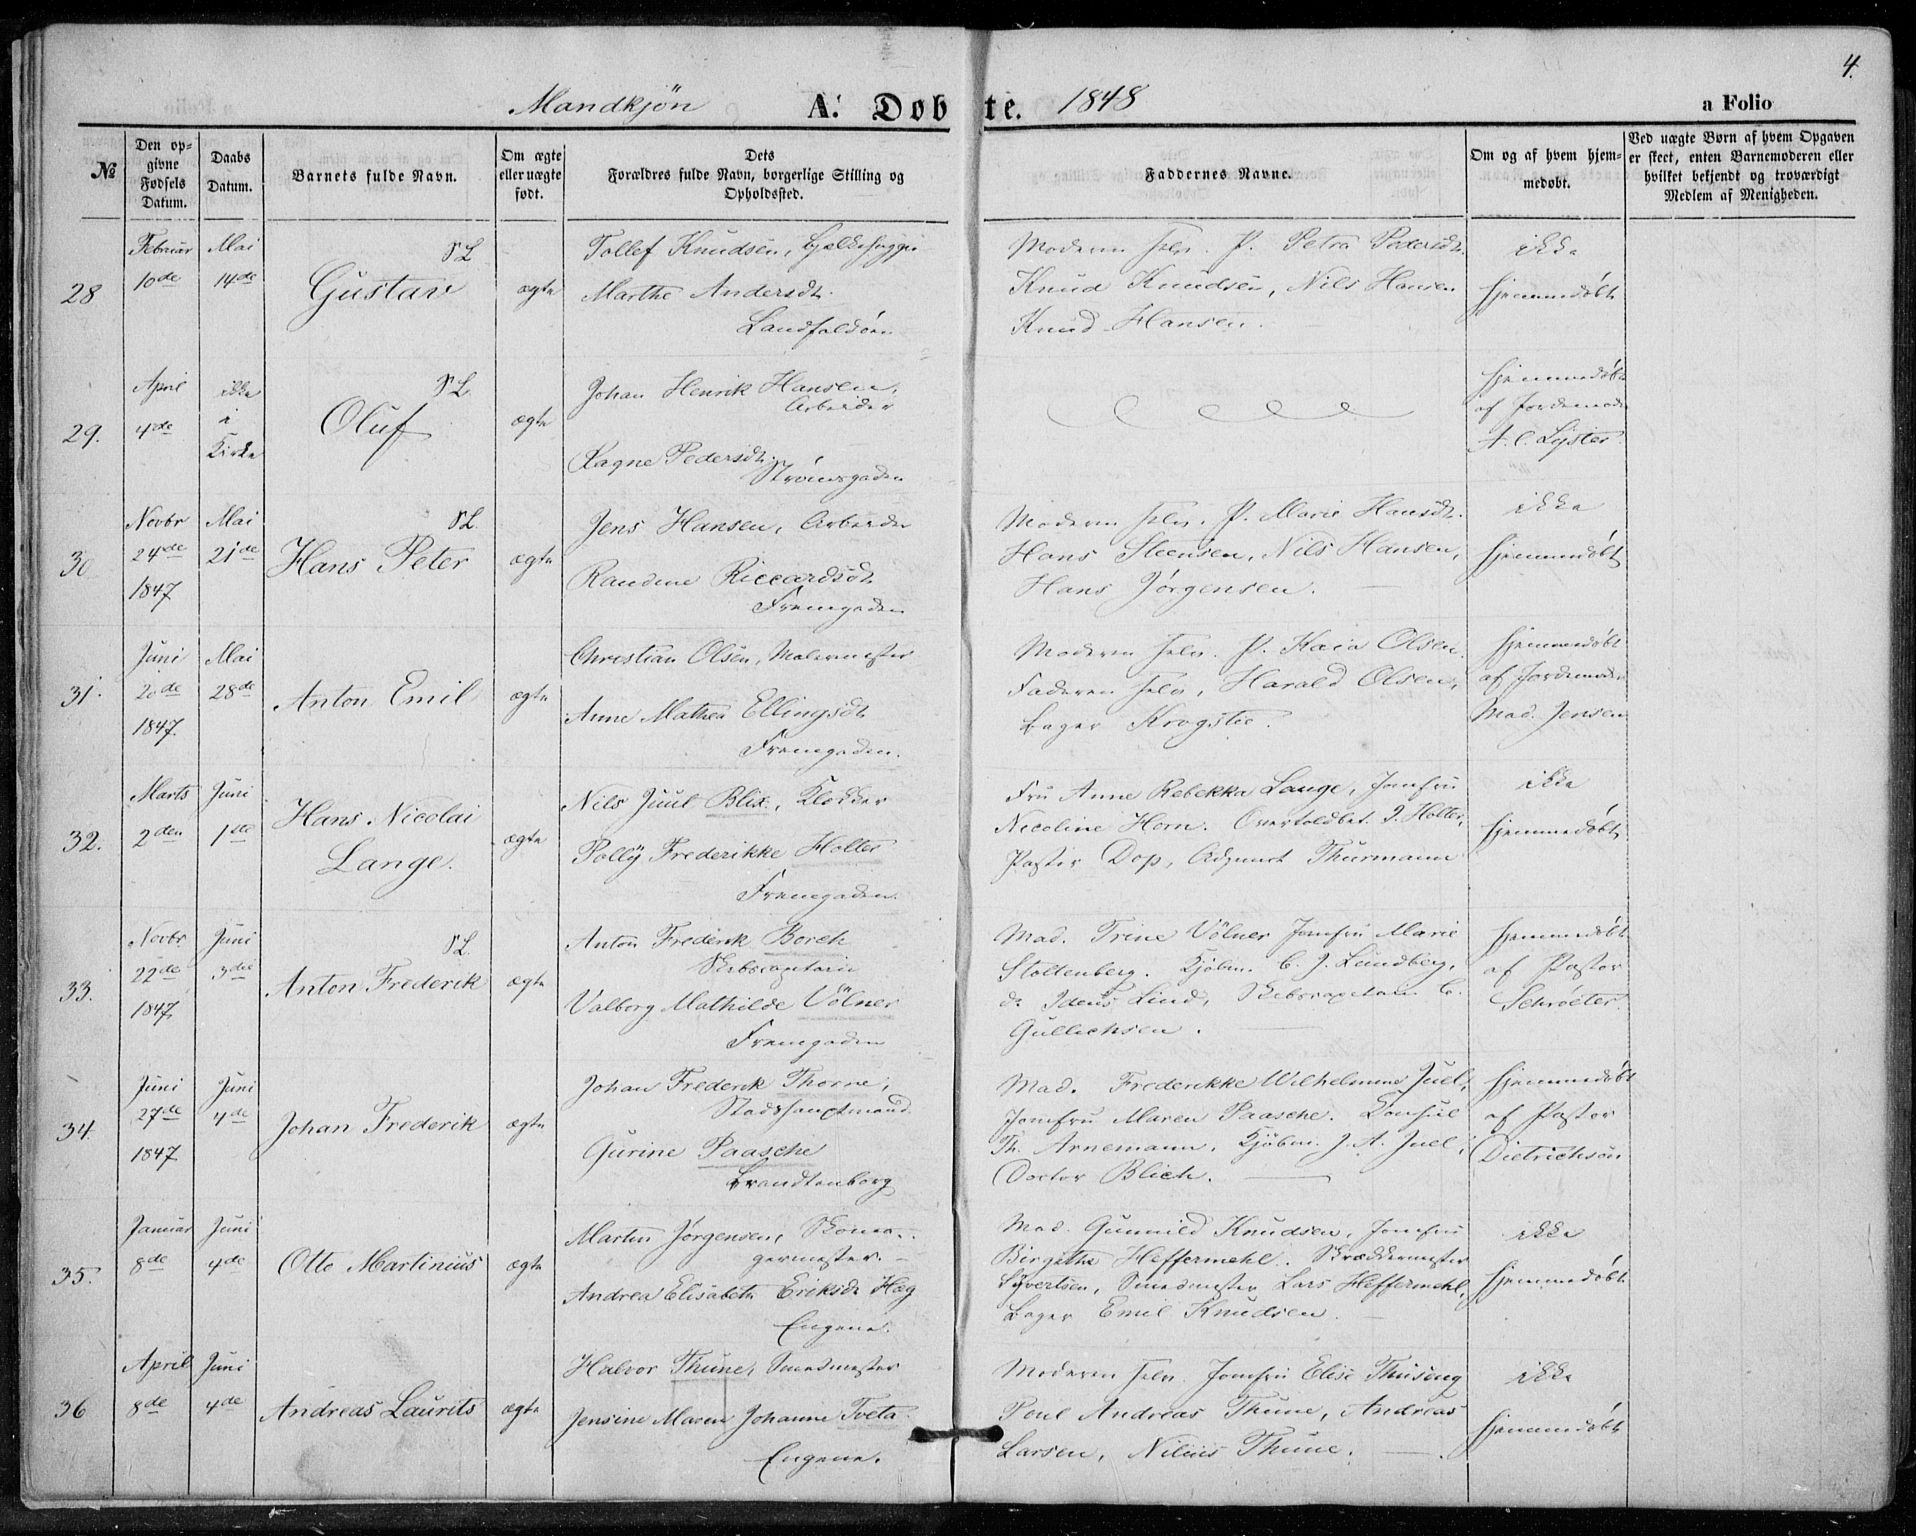 4.
Mandkjøn A. Døbte. 1848 a Folio
№
Den op-
givne
Fødsels
Datum.
Daabs
Datum.
Barnets fulde Navn.
Om ægte
eller uægte
født.
Dets
Forældres fulde Navn, borgerlige Stilling og
Opholdssted.
Faddernes Navne.
Om og af hvem hjem-
medøbt.
Ved uægte Børn af hvem Opgaven
er skeet, enten Barnemoderen eller
hvilket bekjendt og troværdigt
Medlem af Menigheden.
28
Februar
10de
Mai
14de
SL
Gustav
ægte
Tollef Knudsen, Bjelkehugger
Marthe Andersdt.
Landfaldøen
Moderen selv. P. Petra Pedersdt.
Knud Knudsen, Nils Hansen
Knud Hansen.
ikke
hjemmedøbt
29.
April
4de
ikke
i
Kirke
SL
Oluf
ægte
Johan Henrik Hansen,
Arbeider
Ragne Pedersdt.
Strømsgaden
hjemmedøbt
af Jordemoder
A. C. Lyster
30
Novbr
24de
1847
Mai
21de
SL
Hans Peter
ægte
Jens Hansen, Arbeider
Randine Riccardsdt.
Fremgaden
Moderen selv. P. Marie Hansdt.
Hans Steensen, Nils Hansen,
Hans Jørgensen.
ikke
hjemmedøbt
31.
Juni
20de
1847.
Mai
28de
Anton Emil
ægte
Christian Olsen, Malermester
Anne Mathea Ellingsdt.
Fremgaden.
Moderen selv. P. Kaia Olsen
Faderen selv, Harald Olsen,
Bager Krogstie.
hjemmedøbt
af Jordemoder
Mad. Jensen
32.
Marts
2den
Juni
1ste
Hans Nicolai
Lange.
ægte
Nils Juul Blix, Klokker
Polly Frederikke Holter
Fremgaden.
Fru Anne Rebekka Lange, Jomfru
Nicoline Horn. Overtoldbet. J. Holter,
Pastor Dop, Adjunct Thurmann
ikke
hjemmedøbt
33.
Novbr
22de
1847
Juni
3die
SL.
Anton Frederik
ægte
Anton Frederik Borch
Skibscapitain
Valborg Mathilde Völner
Fremgaden
Mad. Trine Völner Jomfru Marie
Stoltenberg. Kjøbm. C. J. Lundberg,
do Idens Lind, Skibscapitain C.
Gullichsen.
hjemmedøbt
af Pastor
Schröeter.
34.
Juni
27de
1847
Juni
4de
Johan Frederik
ægte
Johan Frederik Thorne,
Stadshauptmand.
Gurine Paasche
Brandtenborg
Mad. Frederikke Wilhelmine Juel,
Jomfru Maren Paasche. Konsul
Th. Arnemann, Kjøbm. J. A. Juel,
Doctor Blich.
hjemmedøbt
af Pastor
Dietrichson
35.
Januar
8de
Juni
4de
Otto Martinius
ægte
Martin Jørgensen, Skoma-
germester.
Andrea Elisabeth Eriksdt. Hæg
Engene.
Mad. Gunnild Knudsen, Jomfru
Birgitha Heffermehl. Skræddermester
Syvertsen, Smedmester Lars Heffermehl,
Bager Emil Knudsen.
ikke
hjemmedøbt
36
April
8de
Juni
4de
Andreas Laurits
ægte
Halvor Thune, Smedmester
Jensine Maren Johanne Tveta.
Engene.
Moderen selv. Jomfru Elise Thuseng
Poul Andreas Thune, Andreas
Larsen, Nilius Thune.
ikke
hjemmedøbt